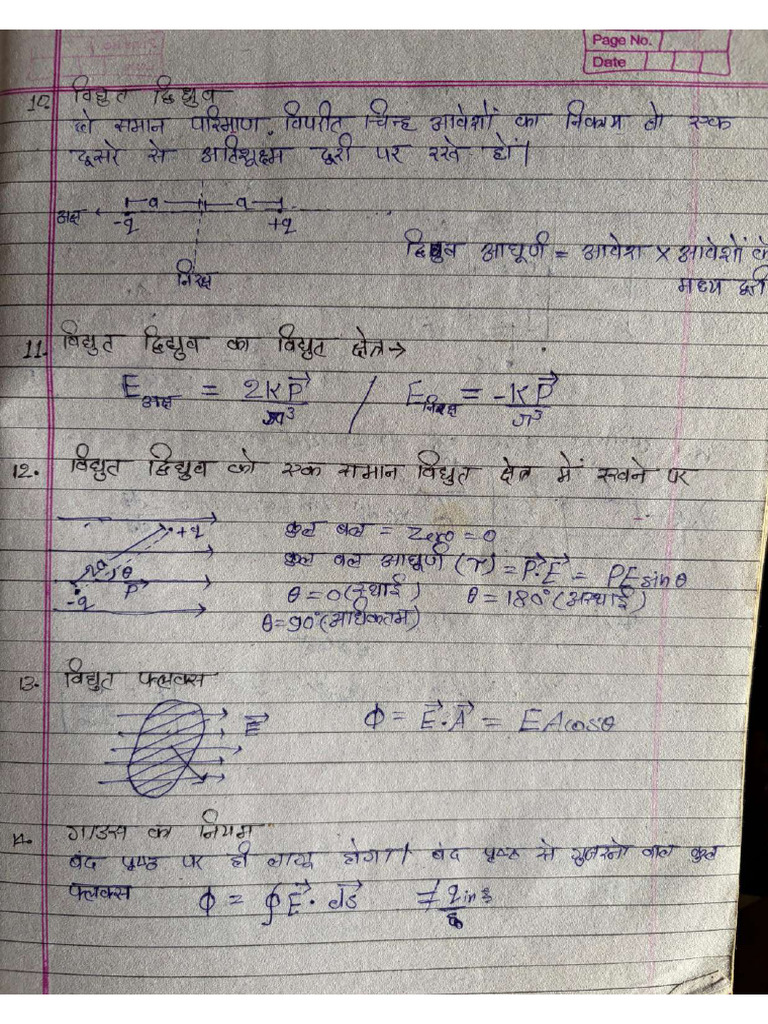 Page No.
Date
10. विद्युत द्विध्रुव
दो समान परिमाण, विपरीत चिन्ह आवेशों का निकाय जो एक
दूसरे से अतिसूक्ष्म दूरी पर रखे हों।
अक्ष a a
-q +q
निरक्ष
द्विध्रुव आघूर्ण = आवेश × आवेशों के
मध्य दूरी
11. विद्युत द्विध्रुव का विद्युत क्षेत्र →
E अक्ष = 2KP⃗/r³ / E निरक्ष = -KP⃗/r³
12. विद्युत द्विध्रुव को एक समान विद्युत क्षेत्र में रखने पर
+q कुल बल = Zero = 0
2a θ कुल बल आघूर्ण (τ) = P⃗·E⃗ = PE sinθ
-q P θ = 0 (स्थाई) θ = 180° (अस्थाई)
θ = 90° (अधिकतम)
13. विद्युत फ्लक्स
E⃗ ϕ = E⃗·A⃗ = EA cosθ
14. गाउस का नियम
बंद पृष्ठ पर ही लागू होगा। बंद पृष्ठ से गुजरने वाले कुल
फ्लक्स ϕ = ∮E⃗·dS⃗ = q in/ε